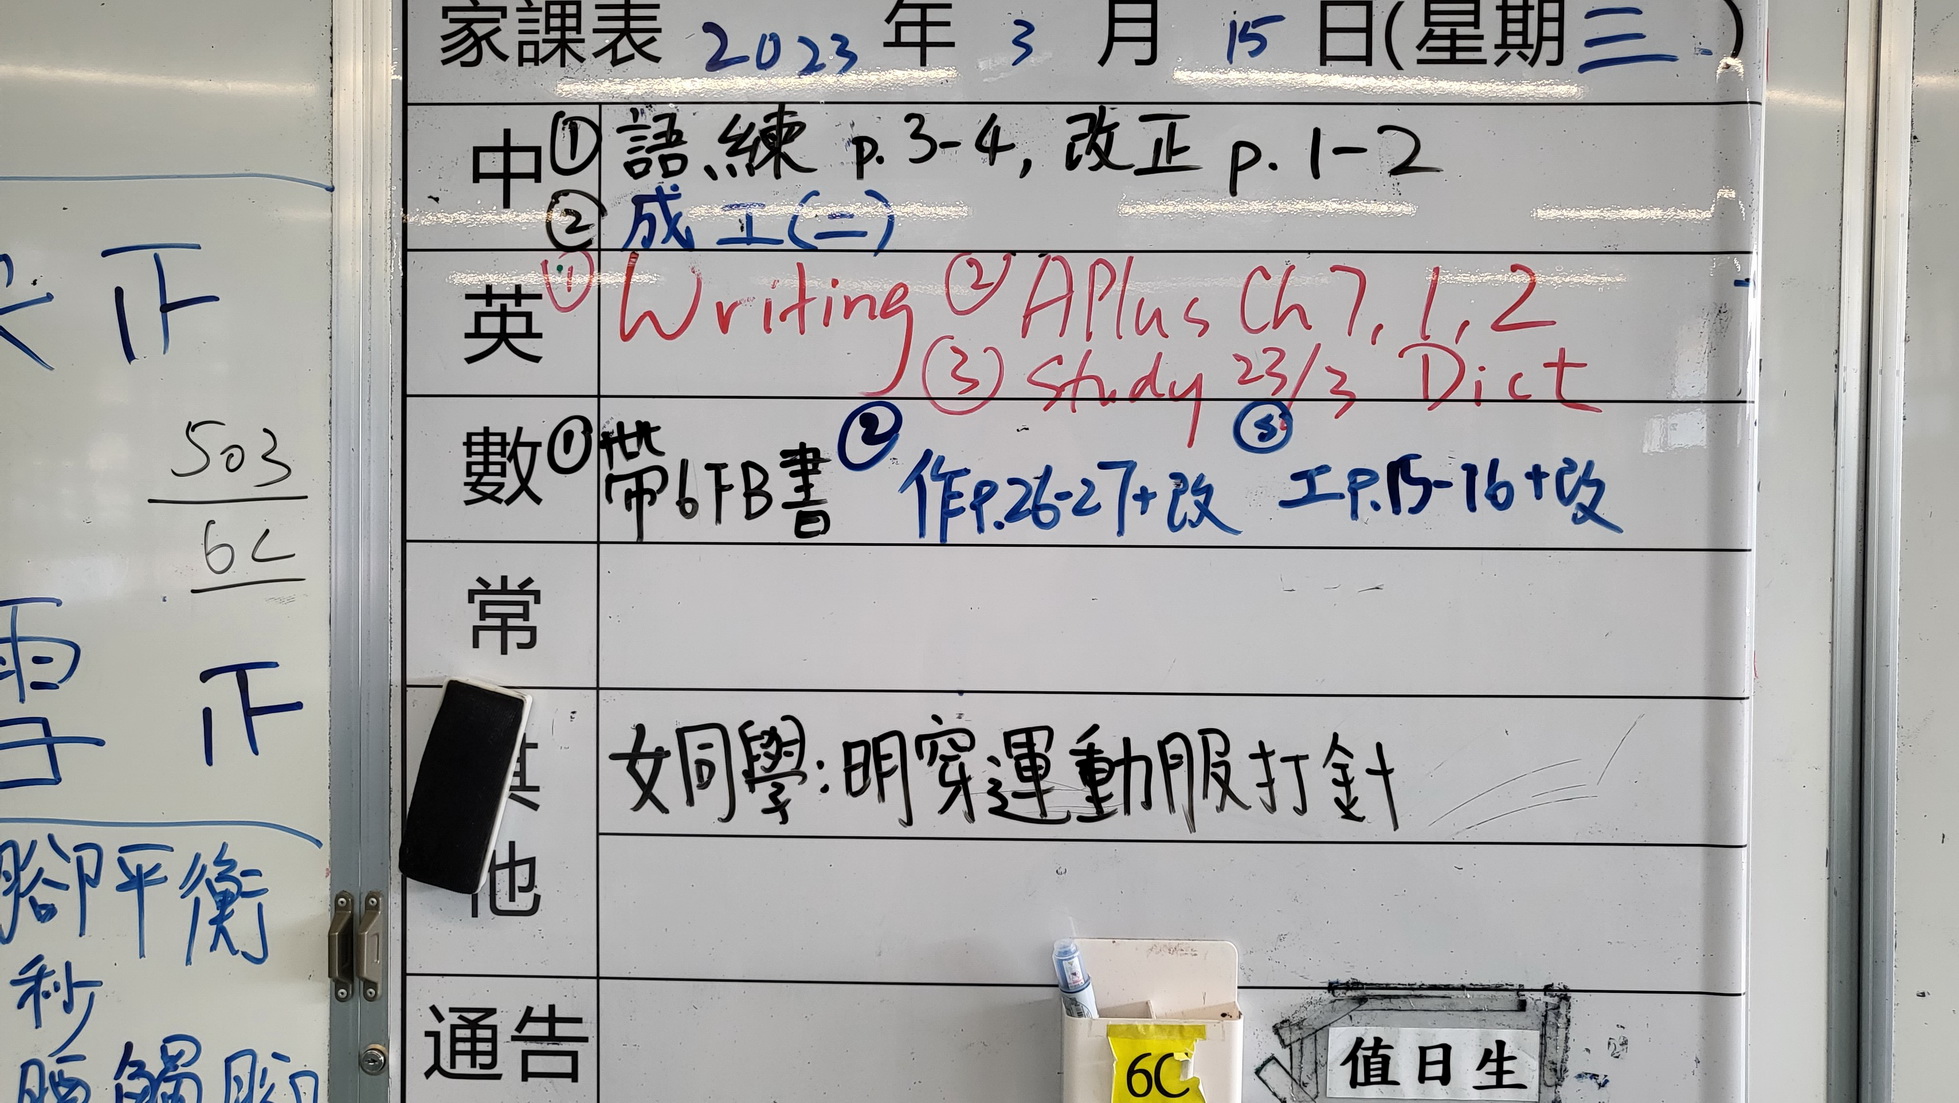 家課表 2023 年 3 月 15 日(星期三)
中 ① 語練 p.3-4, 改正 p.1-2
② 成工(二)
英 ① Writing ② APlus Ch 7, 1, 2
③ Study 23/3 Dict
數 ① 帶6FB書 ② 作P.26-27+改 ③ 工P.15-16+改
常
其他 女同學:明穿運動服打針
通告
6C
值日生
正
503
6C
雪 正
腳平衡
秒